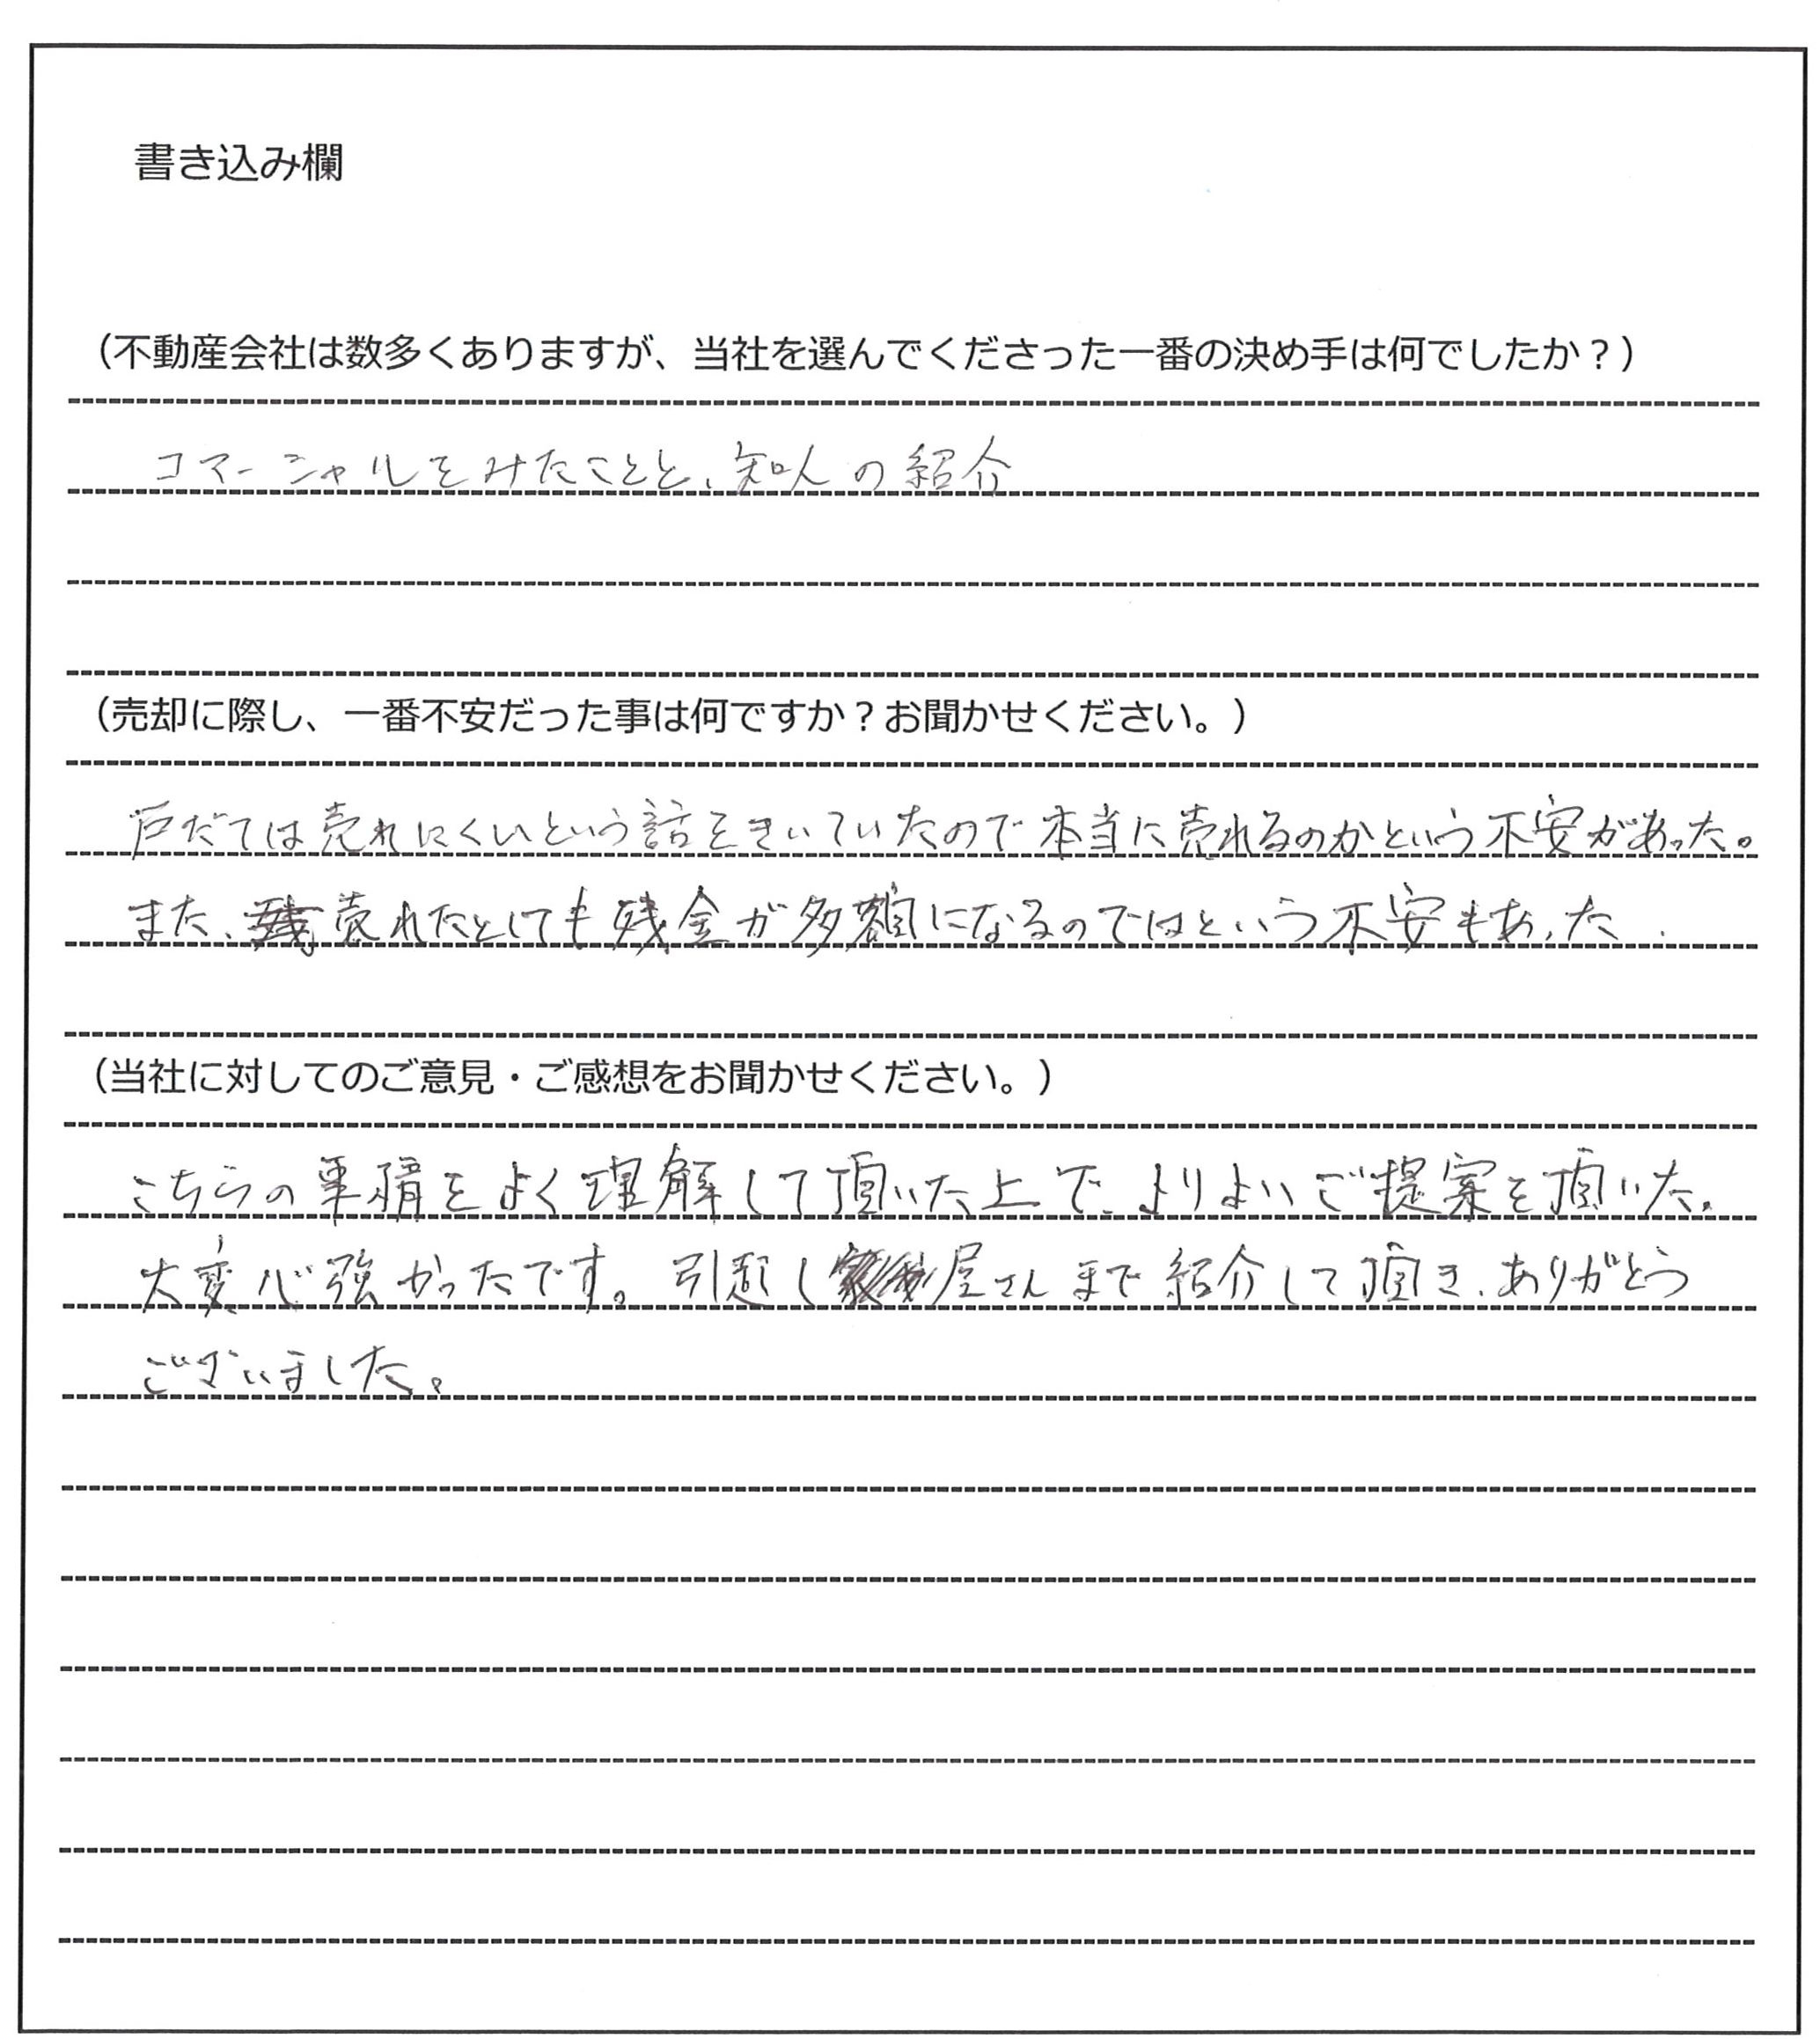 書き込み欄
（不動産会社は数多くありますが、当社を選んでくださった一番の決め手は何でしたか？）
コマーシャルをみたことと、知人の紹介
（売却に際し、一番不安だった事は何ですか？お聞かせください。）
戸だては売れにくいという話をきいていたので本当に売れるのかという不安があった。
また、売れたとしても残金が多額になるのではという不安もあった.
（当社に対してのご意見・ご感想をお聞かせください。）
こちらの事情をよく理解して頂いた上で、よりよいご提案を頂いた。
大変心強かったです。引越し屋さんまで紹介して頂き、ありがとう
ございました。